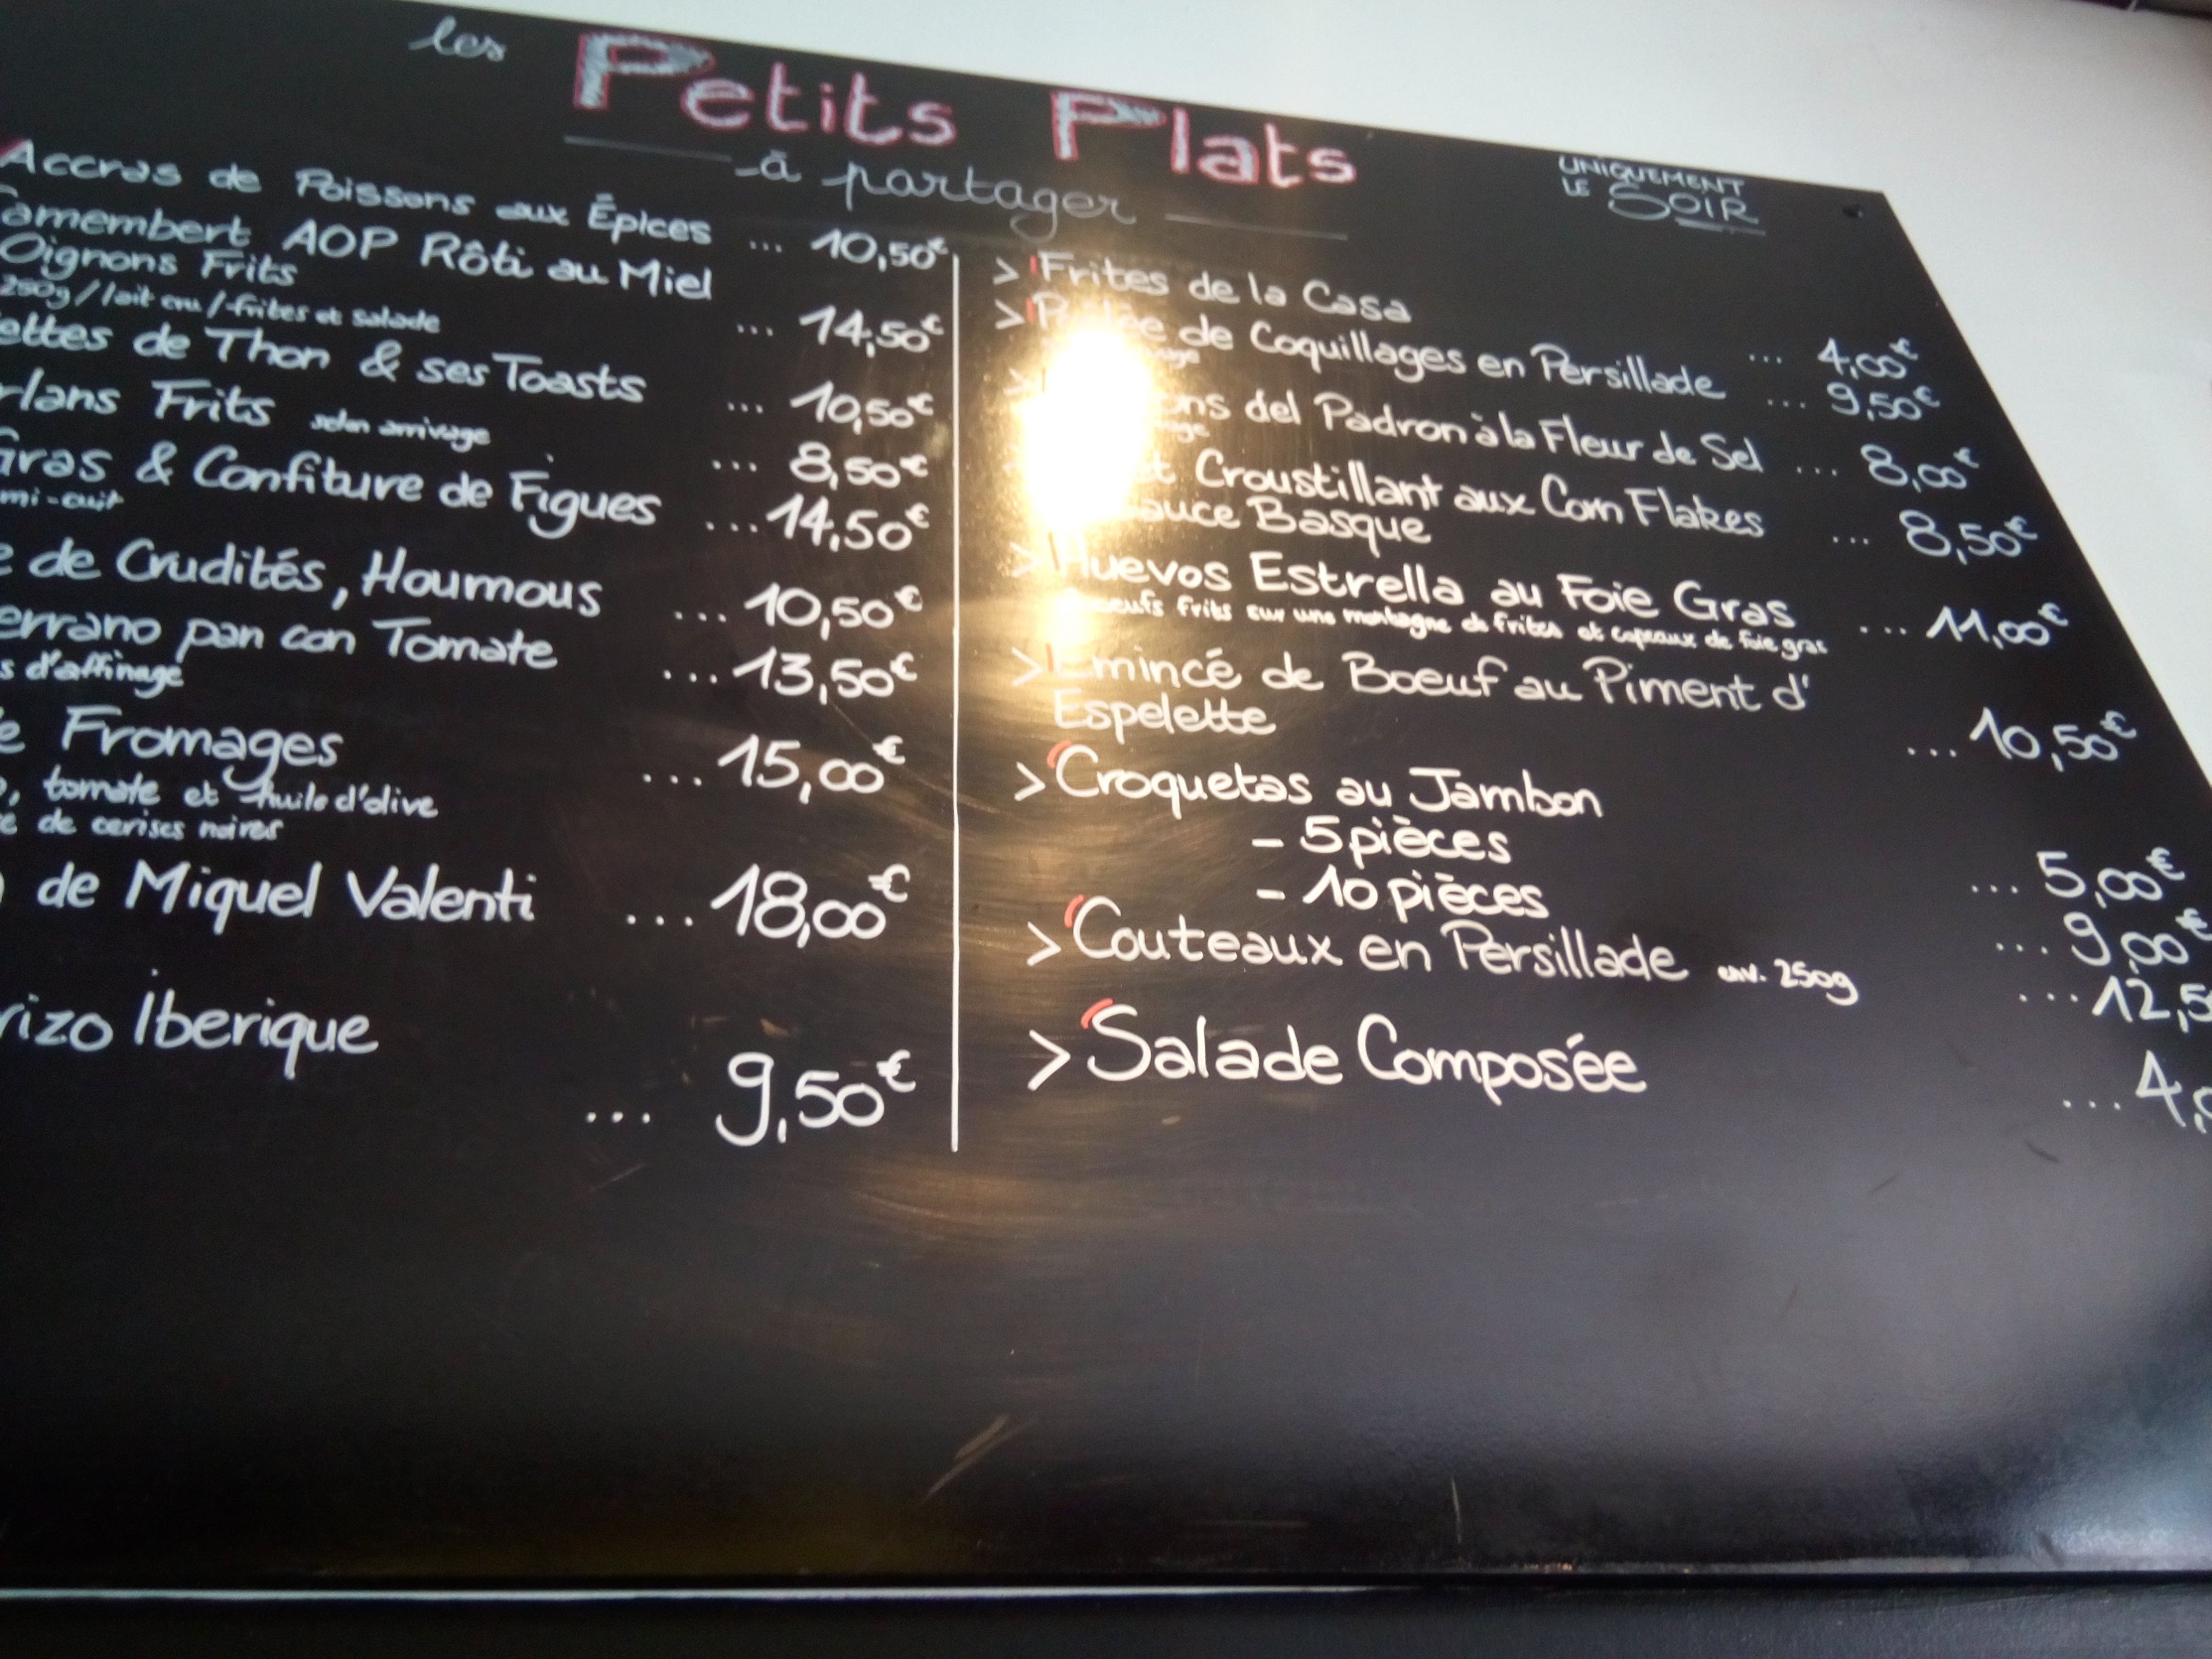 les Petits Plats
à partager
UNIQUEMENT
LE SOIR
Accras de Poissons aux Épices ... 10,50€
Camembert AOP Rôti au Miel
Oignons Frits ... 14,50€
250g/lait cru/frites et salade
de Thon & ses Toasts ... 10,50€
Frits selon arrivage ... 8,50€
Gras & Confiture de Figues ... 14,50€
mi-cuit
de Crudités, Houmous ... 10,50€
pan con Tomate ... 13,50€
d'affinage
Fromages ... 15,00€
tomate et huile d'olive
de cerises noires
de Miquel Valenti ... 18,00€
Iberique
... 9,50€
> Frites de la Casa ... 4,00€
> de Coquillages en Persillade ... 9,50€
> del Padron à la Fleur de Sel ... 8,00€
Croustillant aux Corn Flakes ... 8,50€
Sauce Basque
> Huevos Estrella au Foie Gras ... 11,00€
oeufs frits sur une montagne de frites et copeaux de foie gras
> Emincé de Boeuf au Piment d'
Espelette ... 10,50€
> Croquetas au Jambon
- 5 pièces ... 5,00€
- 10 pièces ... 9,00€
> Couteaux en Persillade env. 250g ... 12,5
> Salade Composée ... 4,